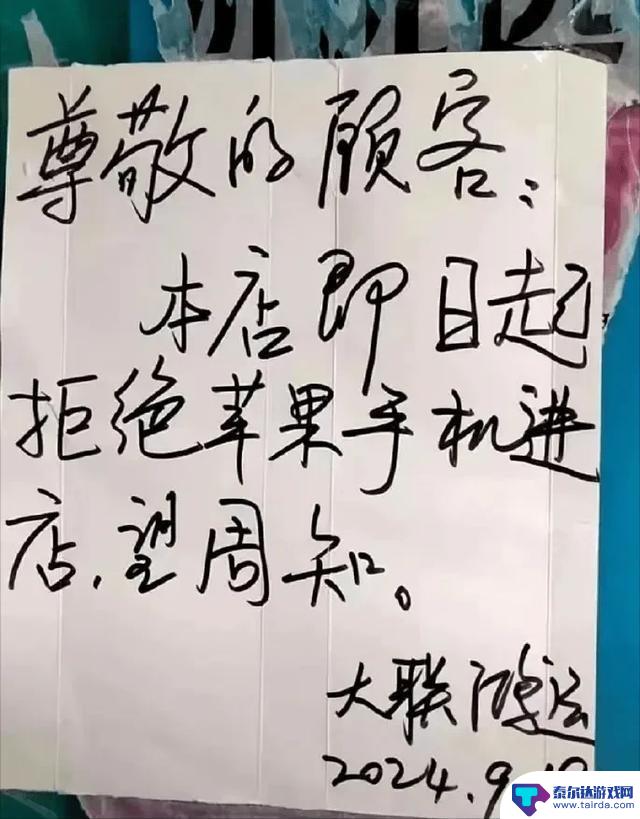 尊敬的顾客：
本店即日起
拒绝苹果手机进
店，望周知。
大联鸿运
2024.9.
泰尔达游戏网
www.tairda.com